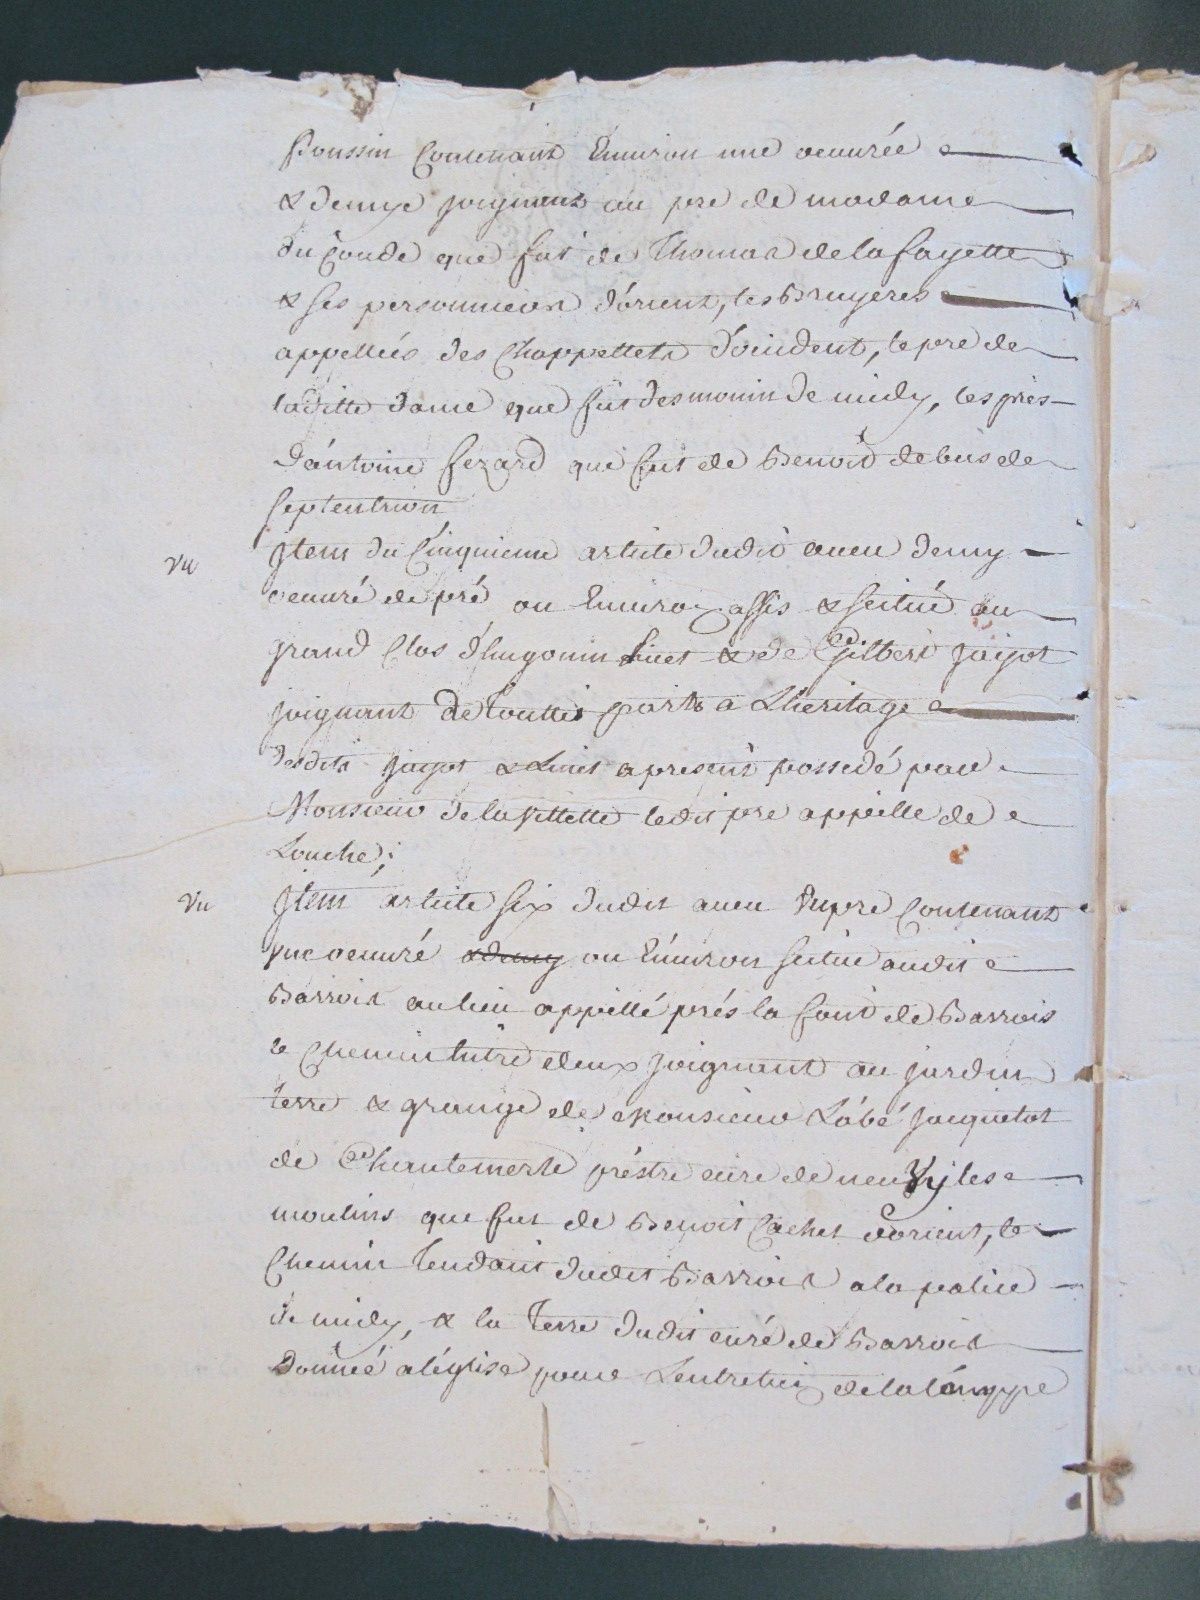 Poussin Contenant Environ une oeuurée
& demye joignant au pre de madame
du Coude que fut de Thomas de lafayette
& ses personniers d'orient, les Bruyeres
appellées des Chappettets d'ocident, le pre de
laditte dame que fut des monin de midy, les prés
d'antoine fezard qui fut de Benoit debus de
septentrion
vu
jtem du Cinquieme article dudit aueu demy
oeuuré de pré ou Enuiron assis & scitué au
grand Clos d'hugonin Linet & de Gilbert jajot
joignant de toutte parts a L'heritage
desdits jajot & Linet apresent possedé par
Monsieur de la Villette ledit pre appelle de
Louche;
vu
jtem article six dudit aueu Vn pre Contenant
vne oeuuré & demy ou Enuiron scitué audit
Barrois au lieu appellé prés la font de Barrois
le Chemin Entre deux joignant au jardin
terre & grange de Monsieur L'abé jacquetot
de Chantemerle préstre curé de neuVy les
moulins que fut de Benoit Cachet d'orient, le
Chemin Tendant dudit Barrois a la palice
de midy, & la Terre dudit curé de Barrois
Donneé a léglise pour Lentretien de la lámppe